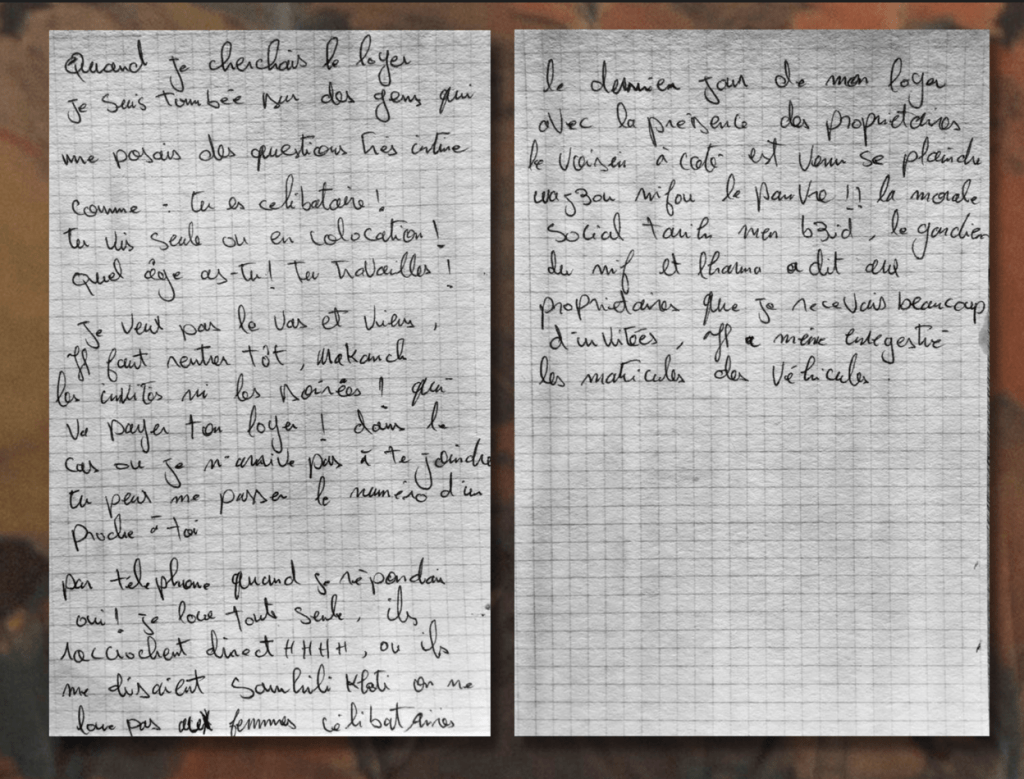 Quand je cherchais le loyer
je suis tombée sur des gens qui
me posais des questions très intime
comme : tu es celibataire !
tu vis seule ou en colocation !
quel âge as-tu ! tu travailles !
je veut pas le vas et viens,
Il faut rentrer tôt, makanch
les invités ni les soirées ! qui
va payer ton loyer ! dans le
cas ou je n'arrive pas à te joindre
tu peus me passer le numéro d'un
proche à toi
par telephone quand je répondais
oui ! je loue toute seule, ils
raccrochent direct HHHH, ou ils
me disaient Samhili Khti on ne
loue pas aux femmes célibataires
le dernier jour de mon loyer
avec la présence des proprietaires
le voisin à coté est venu se plaindre
wag3ou nifou le pauvre !! la morale
social tarih men b3id, le gardien
du nif et lharma a dit aux
proprietaires que je recevais beaucoup
d'invitées, Il a même enregestré
les matricules des véhicules